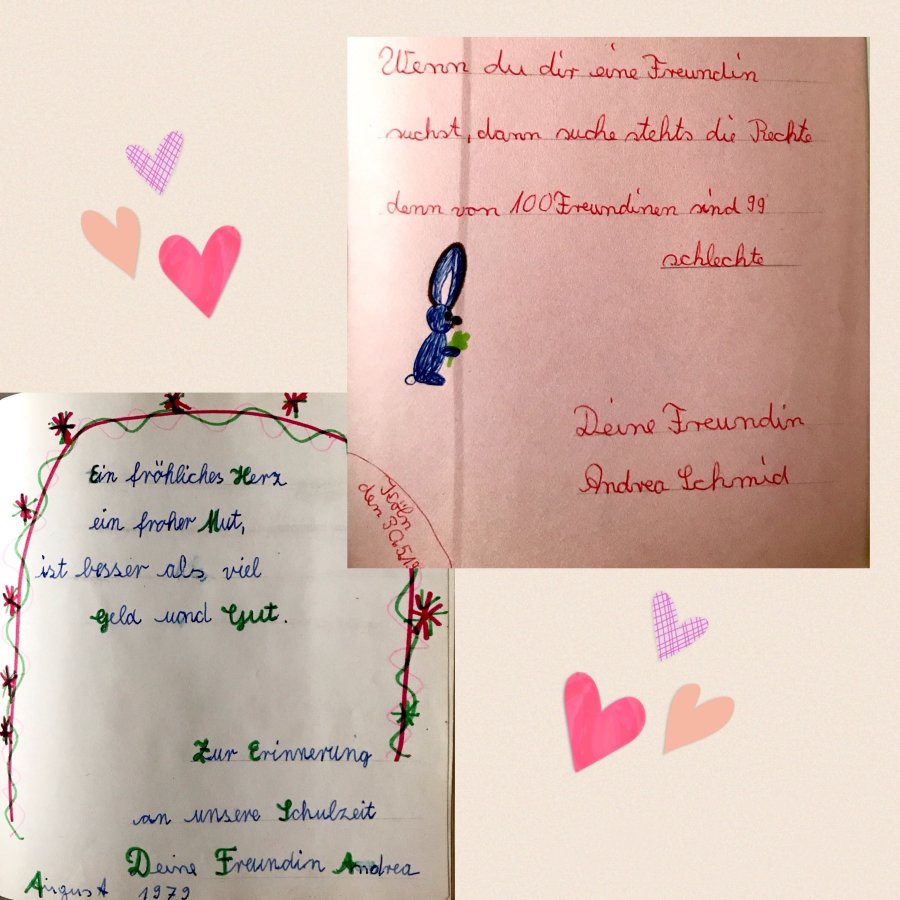 Wenn du dir eine Freundin
suchst, dann suche stehts die Rechte
denn von 100 Freundinen sind 99
schlechte
Deine Freundin
Andrea Schmid
den 30.5
Ein fröhliches Herz
ein froher Mut,
ist besser als viel
Geld und Gut.
Zur Erinnerung
an unsere Schulzeit
Deine Freundin Andrea
August 1979